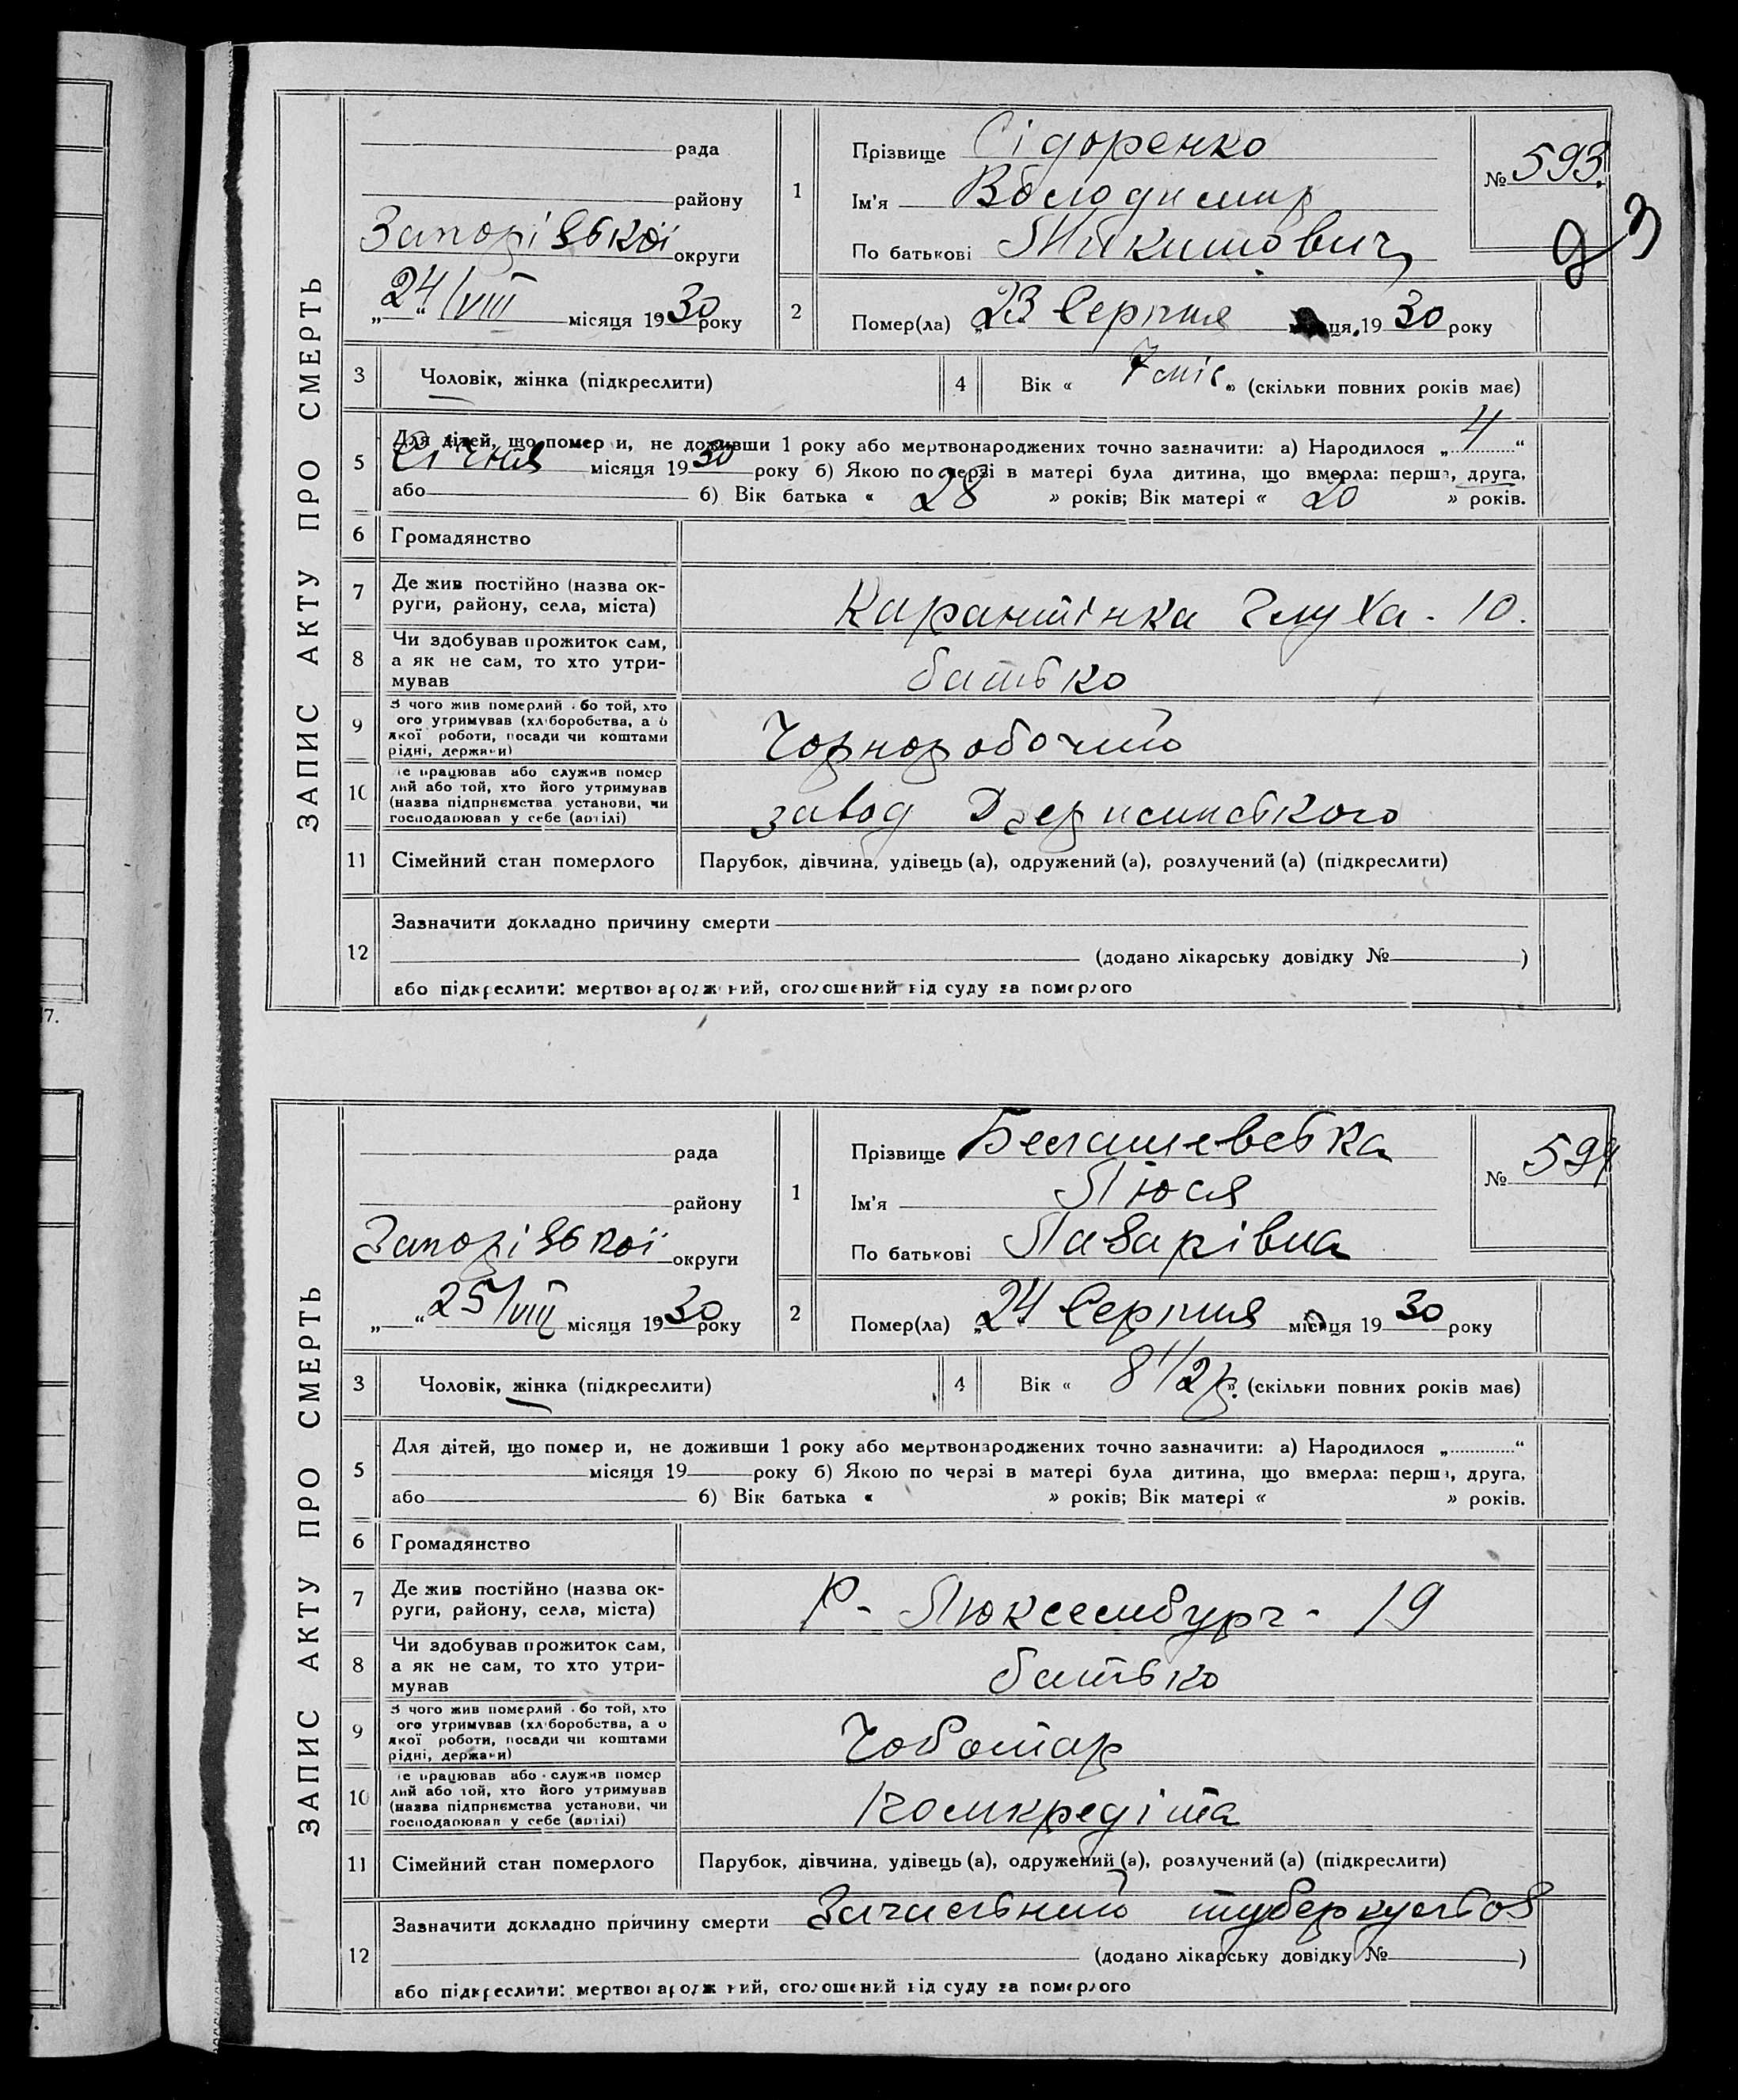 ЗАПИС АКТУ ПРО СМЕРТЬ
рада
району
Запорізької округи
„24“/VIII місяця 1930 року
1
Прізвище Сідоренко
Ім'я Володимир
По батькові Микитович
№ 593.
2
Помер(ла) „23“ Серпня місяця, 1930 року
3 Чоловік, жінка (підкреслити)
4 Вік « 7 міс » (скільки повних років має)
5
Для дітей, що помер и, не доживши 1 року або мертвонароджених точно зазначити: а) Народилося „4“
Січня місяця 1930 року б) Якою по черзі в матері була дитина, що вмерла: перша, друга,
або б) Вік батька « 28 » років; Вік матері « 20 » років.
6 Громадянство
7 Де жив постійно (назва ок-
руги, району, села, міста)
Карантінка Глуха - 10.
8 Чи здобував прожиток сам,
а як не сам, то хто утри-
мував
батько
9 З чого жив померлий або той, хто
ого утримував (хліборобства, а о
якої роботи, посади чи коштами
рідні, держави)
Чорноробочий
10 е працював або служив помер
лий або той, хто його утримував
(назва підприємства установи, чи
господарював у себе (артілі)
завод Дзержинського
11 Сімейний стан померлого
Парубок, дівчина, удівець (а), одружений (а), розлучений (а) (підкреслити)
12
Зазначити докладно причину смерти
(додано лікарську довідку № )
або підкреслити: мертвонароджений, оголошений від суду за померлого
7.
ЗАПИС АКТУ ПРО СМЕРТЬ
рада
району
Запорізької округи
„ “ 25/VIII місяця 1930 року
1
Прізвище Белашевська
Ім'я Люся
По батькові Лазарівна
№ 594
2
Помер(ла) „24“ Серпня місяця 1930 року
3 Чоловік, жінка (підкреслити)
4 Вік « 8 1/2 р. » (скільки повних років має)
5
Для дітей, що помер и, не доживши 1 року або мертвонароджених точно зазначити: а) Народилося „ “
місяця 19 року б) Якою по черзі в матері була дитина, що вмерла: перша, друга,
або б) Вік батька « » років; Вік матері « » років.
6 Громадянство
7 Де жив постійно (назва ок-
руги, району, села, міста)
Р- Люксембург - 19
8 Чи здобував прожиток сам,
а як не сам, то хто утри-
мував
батько
9 З чого жив померлий або той, хто
ого утримував (хліборобства, а о
якої роботи, посади чи коштами
рідні, держави)
Чоботар
10 е працював або служив помер
лий або той, хто його утримував
(назва підприємства установи, чи
господарював у себе (артілі)
Комкредіта
11 Сімейний стан померлого
Парубок, дівчина, удівець (а), одружений (а), розлучений (а) (підкреслити)
12
Зазначити докладно причину смерти Загальний туберкульоз
(додано лікарську довідку № )
або підкреслити: мертвонароджений, оголошений від суду за померлого